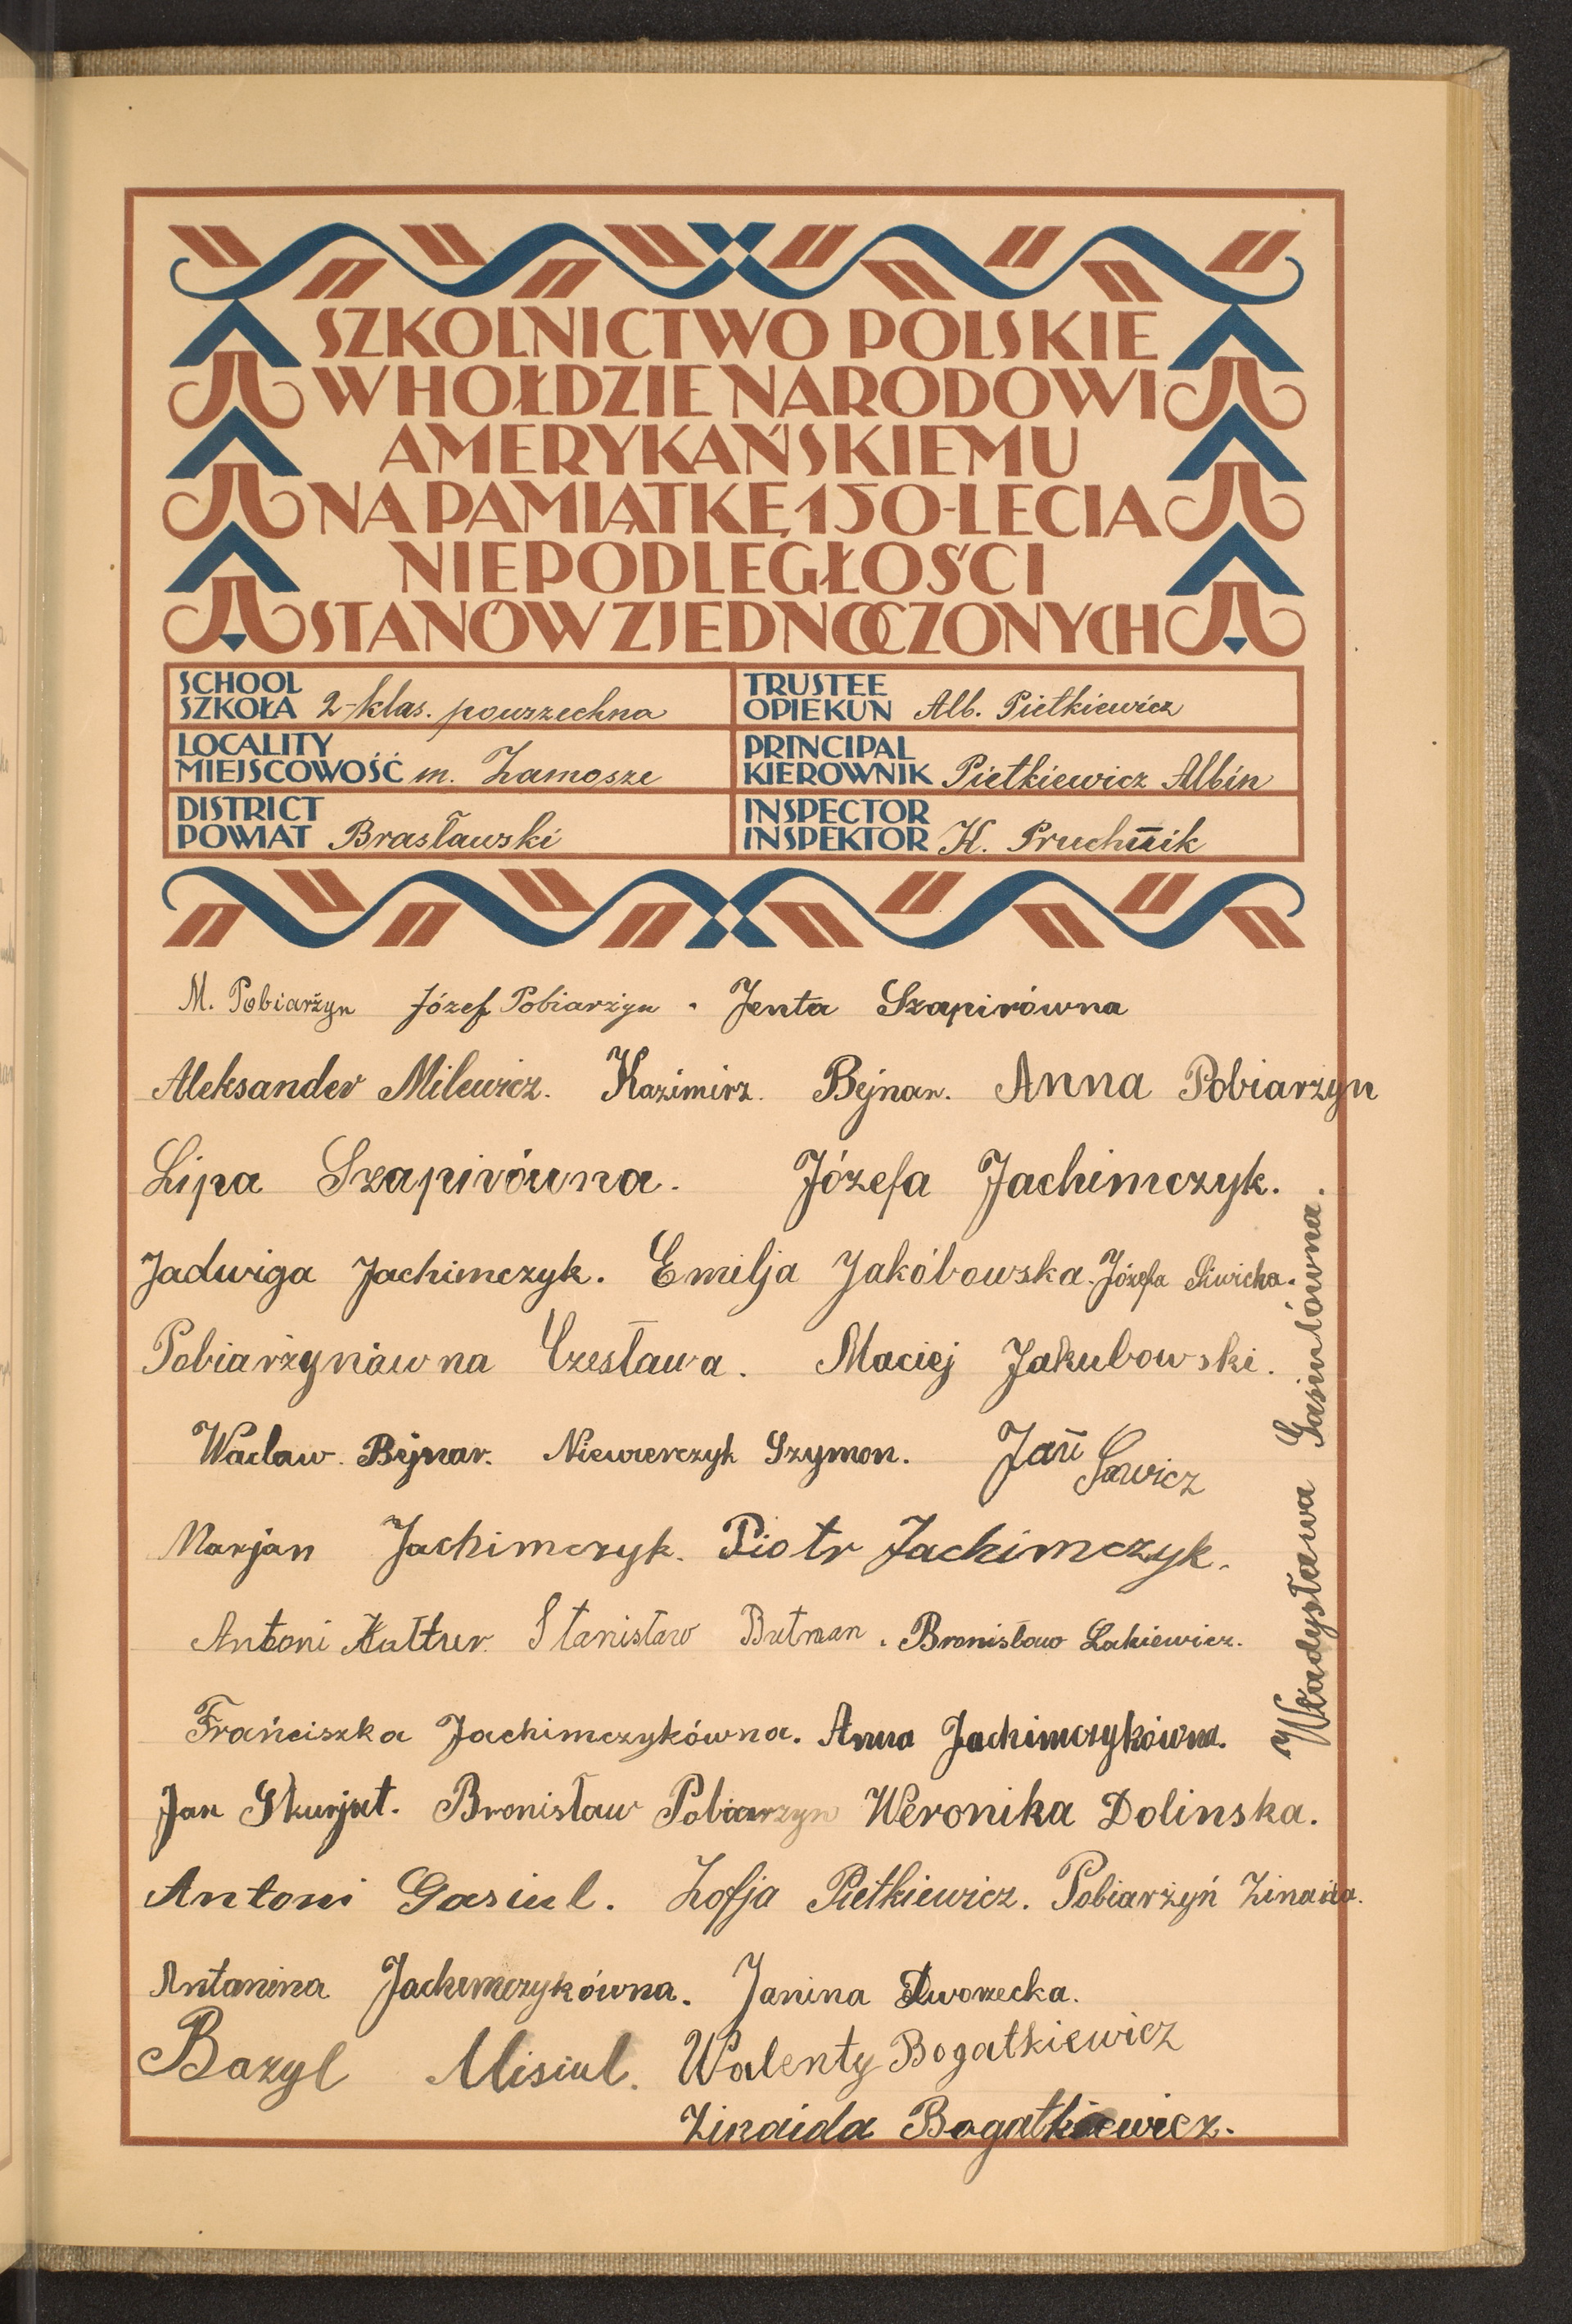 SZKOLNICTWO POLSKIE
W HOŁDZIE NARODOWI
AMERYKAŃSKIEMU
NA PAMIĄTKĘ 150-LECIA
NIEPODLEGŁOŚCI
STANÓW ZJEDNOCZONYCH
SCHOOL
SZKOŁA 2-klas. powszechna
TRUSTEE
OPIEKUN Alb. Pietkiewicz
LOCALITY
MIEJSCOWOŚĆ m. Zamosze
PRINCIPAL
KIEROWNIK Pietkiewicz Albin
DISTRICT
POWIAT Brasławski
INSPECTOR
INSPEKTOR K. Pruchnik
M. Pobiarżyn Józef Pobiarżyn . Jenta Szapirówna
Aleksander Milewicz. Kazimirz. Bejnar. Anna Pobiarzyn
Lipa Szapirówna. Józefa Jachimczyk.
Jadwiga Jachimczyk. Emilja Jakóbowska. Józefa
Pobiarżynówna Czesława. Maciej Jakubowski.
Wacław. Bejnar. Niewierczyk Szymon. Jan Sawicz
Marjan Jachimczyk. Piotr Jachimczyk.
Antoni Stanisław Butman. Bronisław Łakiewicz.
Frańciszka Jachimczykówna. Anna Jachimczykówna.
Jan Skurjat. Bronisław Pobiarzyn Weronika Dolinska.
Antoni Gasiul. Zofja Pietkiewicz. Pobiarżyń Zinaida.
Antanina Jachimczykówna. Janina Dworzecka.
Bazyl Misiul. Walenty Bogatkiewicz
Zinaida Bogatkiewicz.
Władysława Gasiulówna.